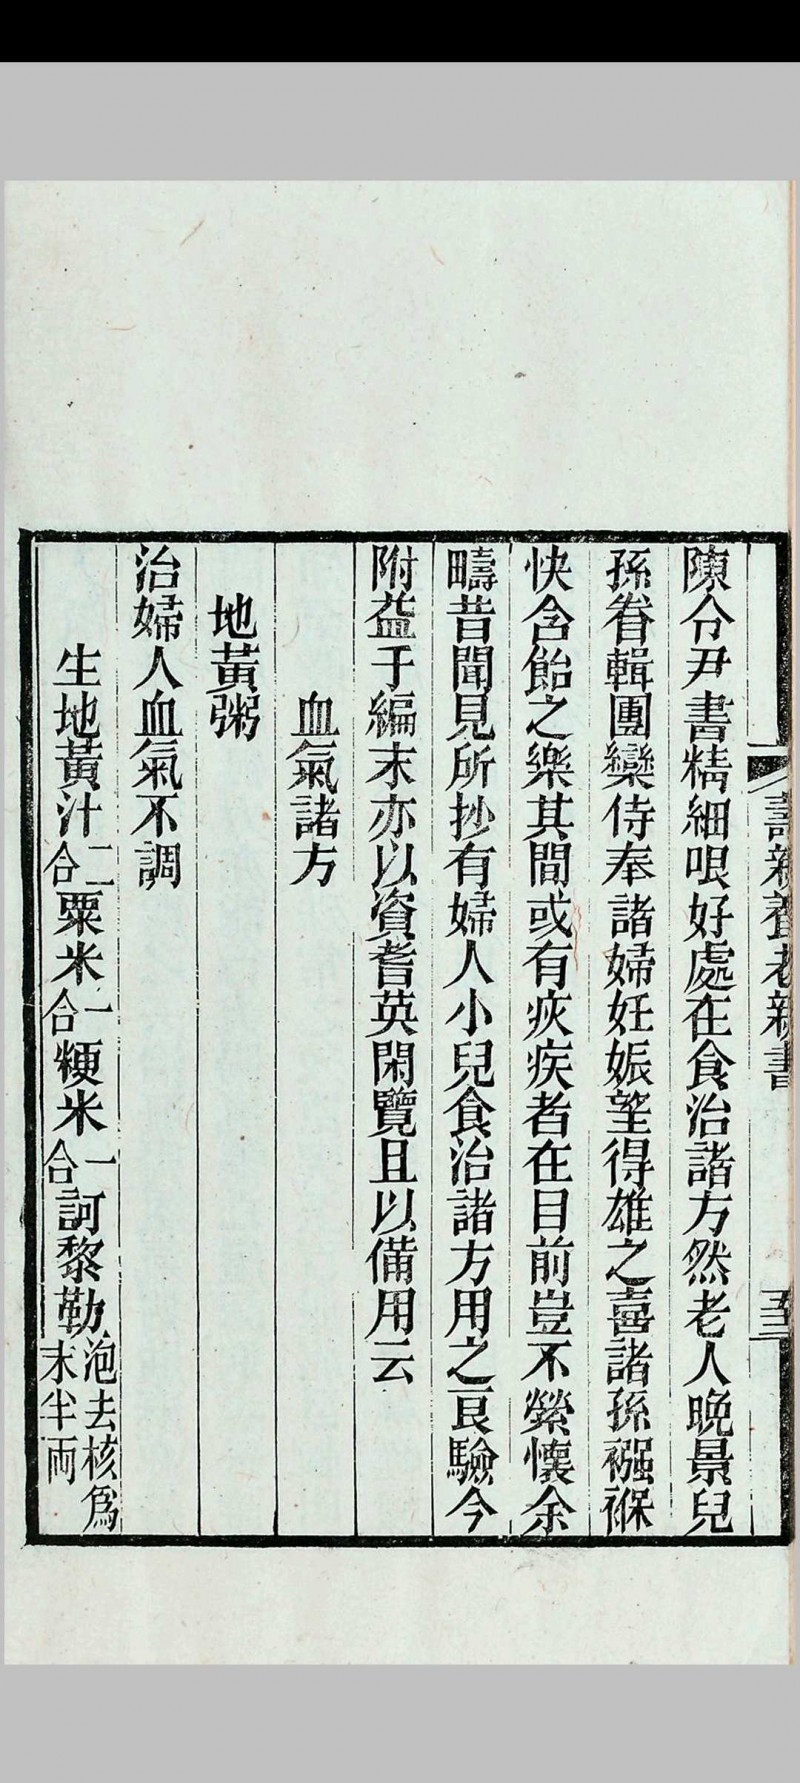 壽親養老新書
五三
陳令尹書精細哏好處在食治諸方然老人晚景兒
孫眷輯團欒侍奉諸婦妊娠望得雄之喜諸孫襁褓
快含飴之樂其間或有疢疾者在目前豈不縈懷余
疇昔聞見所抄有婦人小兒食治諸方用之良驗今
附益于編末亦以資耆英閑覽且以備用云
血氣諸方
地黃粥
治婦人血氣不調
生地黃汁二合粟米一合粳米一合訶黎勒泡去核爲末半兩